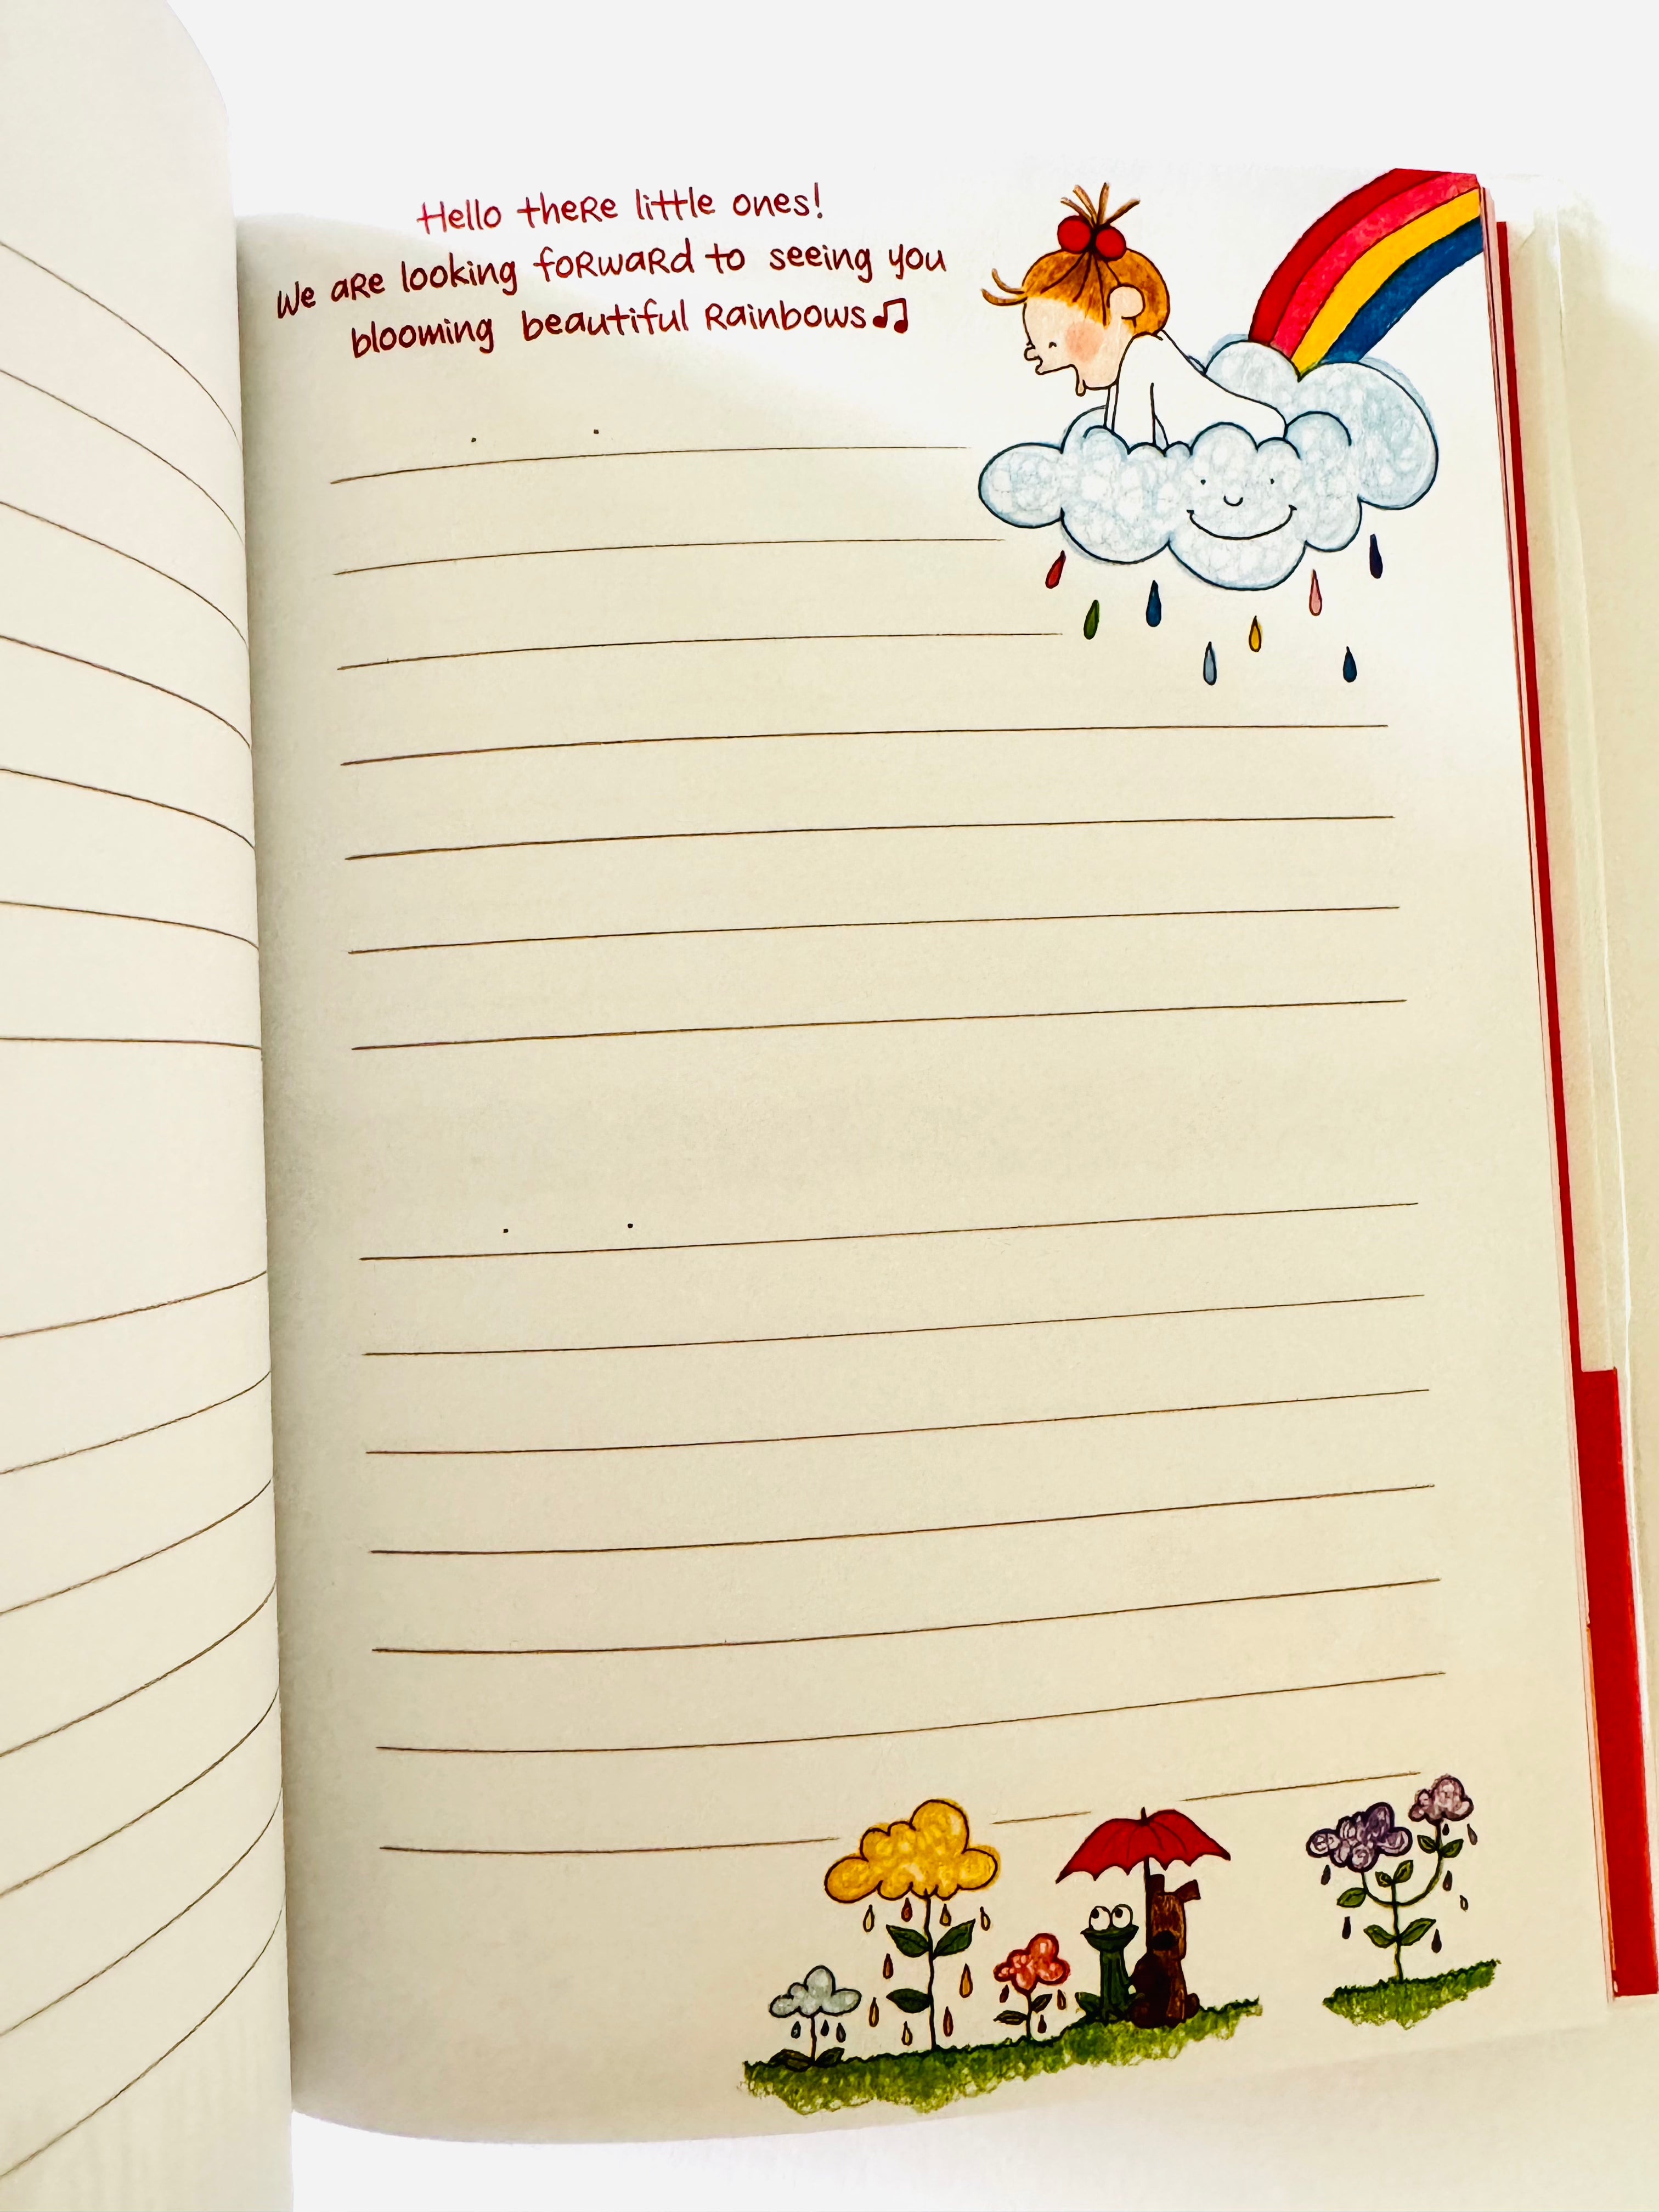 Hello there little ones!
We are looking forward to seeing you
blooming beautiful Rainbows♫